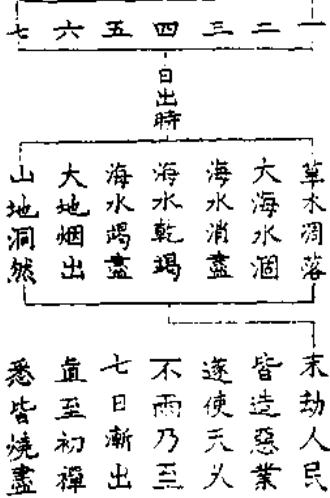 一
二
三
四
五
六
七
日出時
草木凋落
大海水涸
海水消盡
海水乾竭
海水竭盡
大地烟出
山地洞然
末劫人民
皆造惡業
遂使天久
不雨乃至
七日漸出
直至初禪
悉皆燒盡